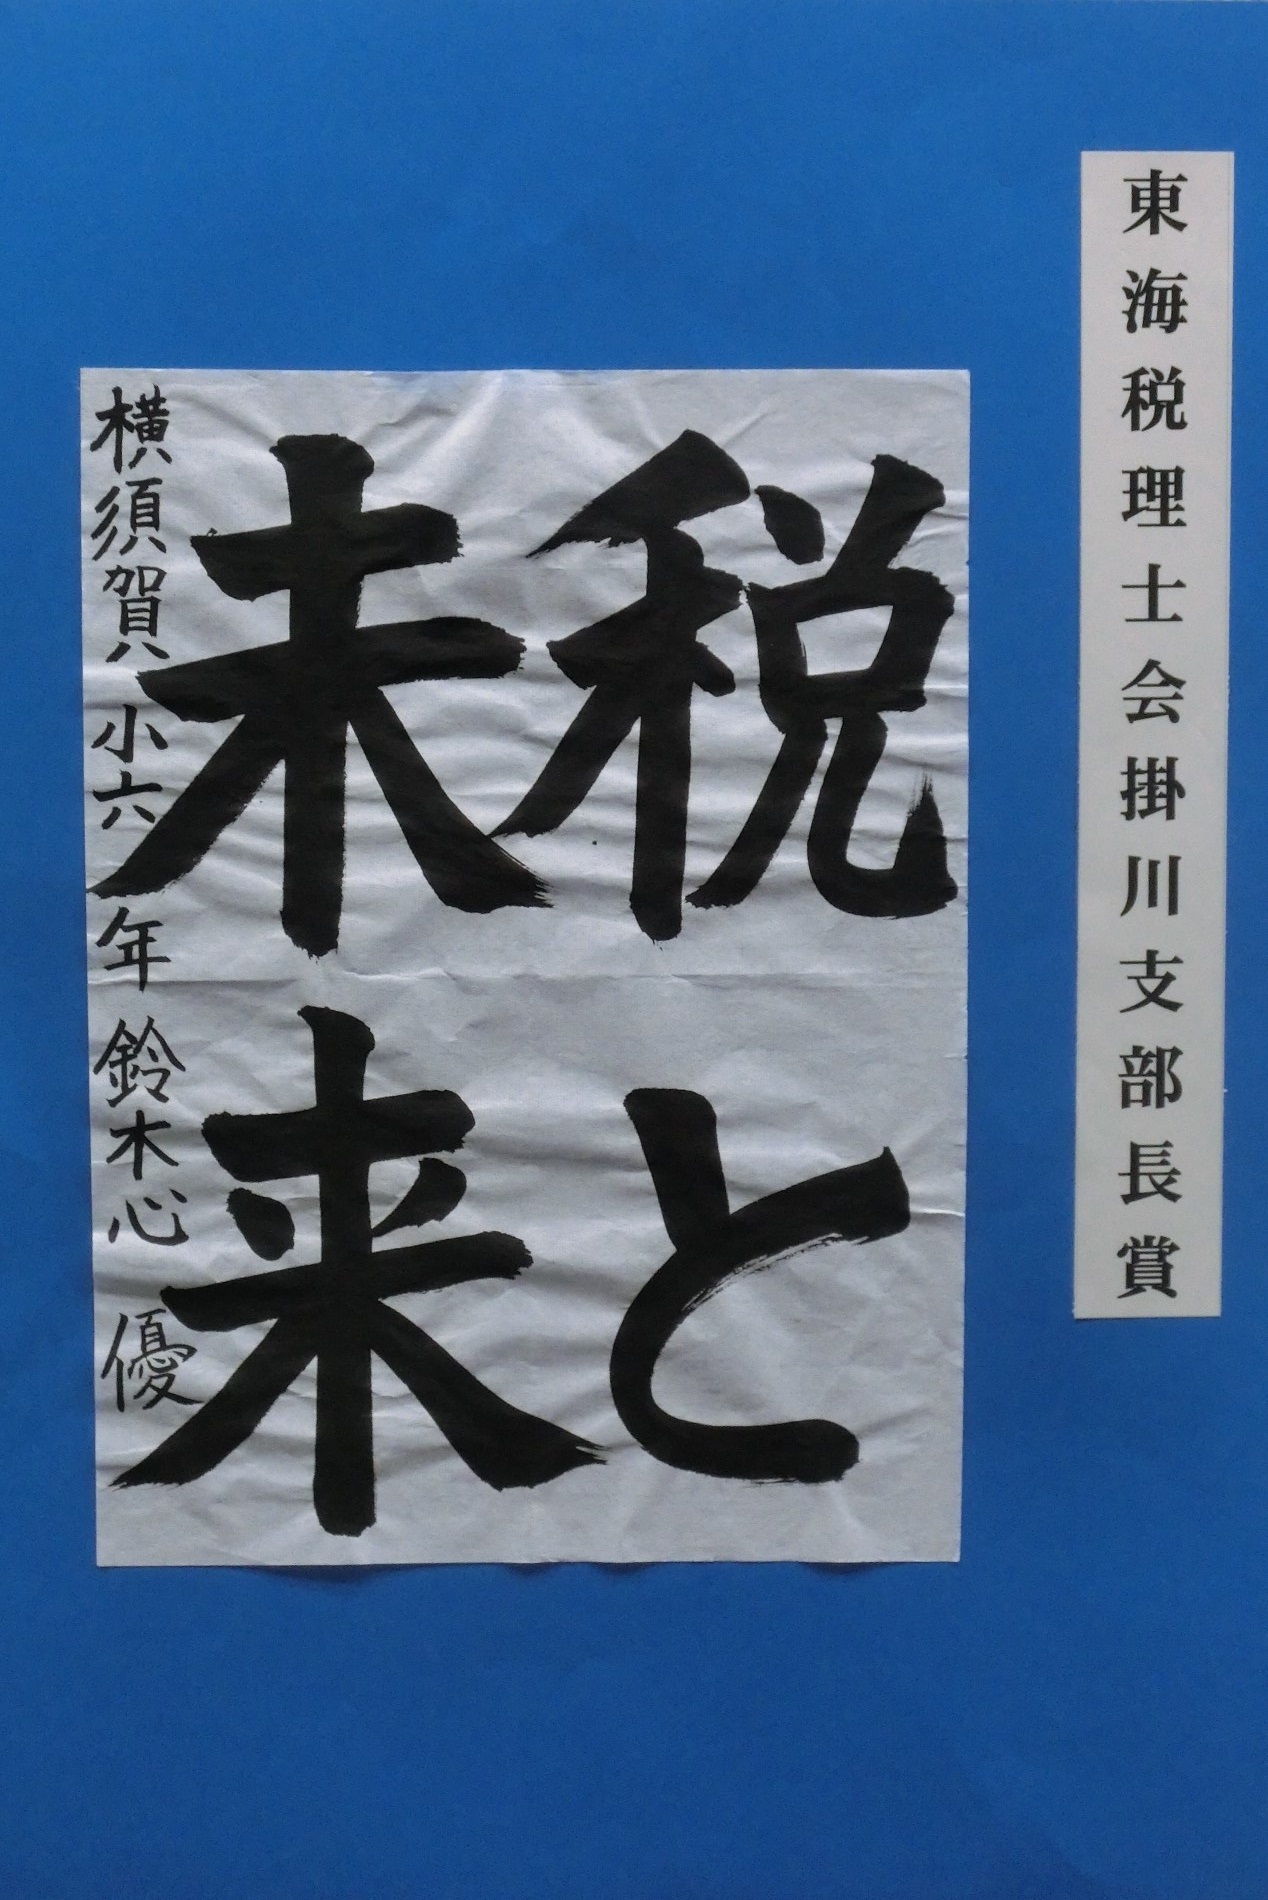 東海税理士会掛川支部長賞
税と
未来
横須賀小六年 鈴木心優